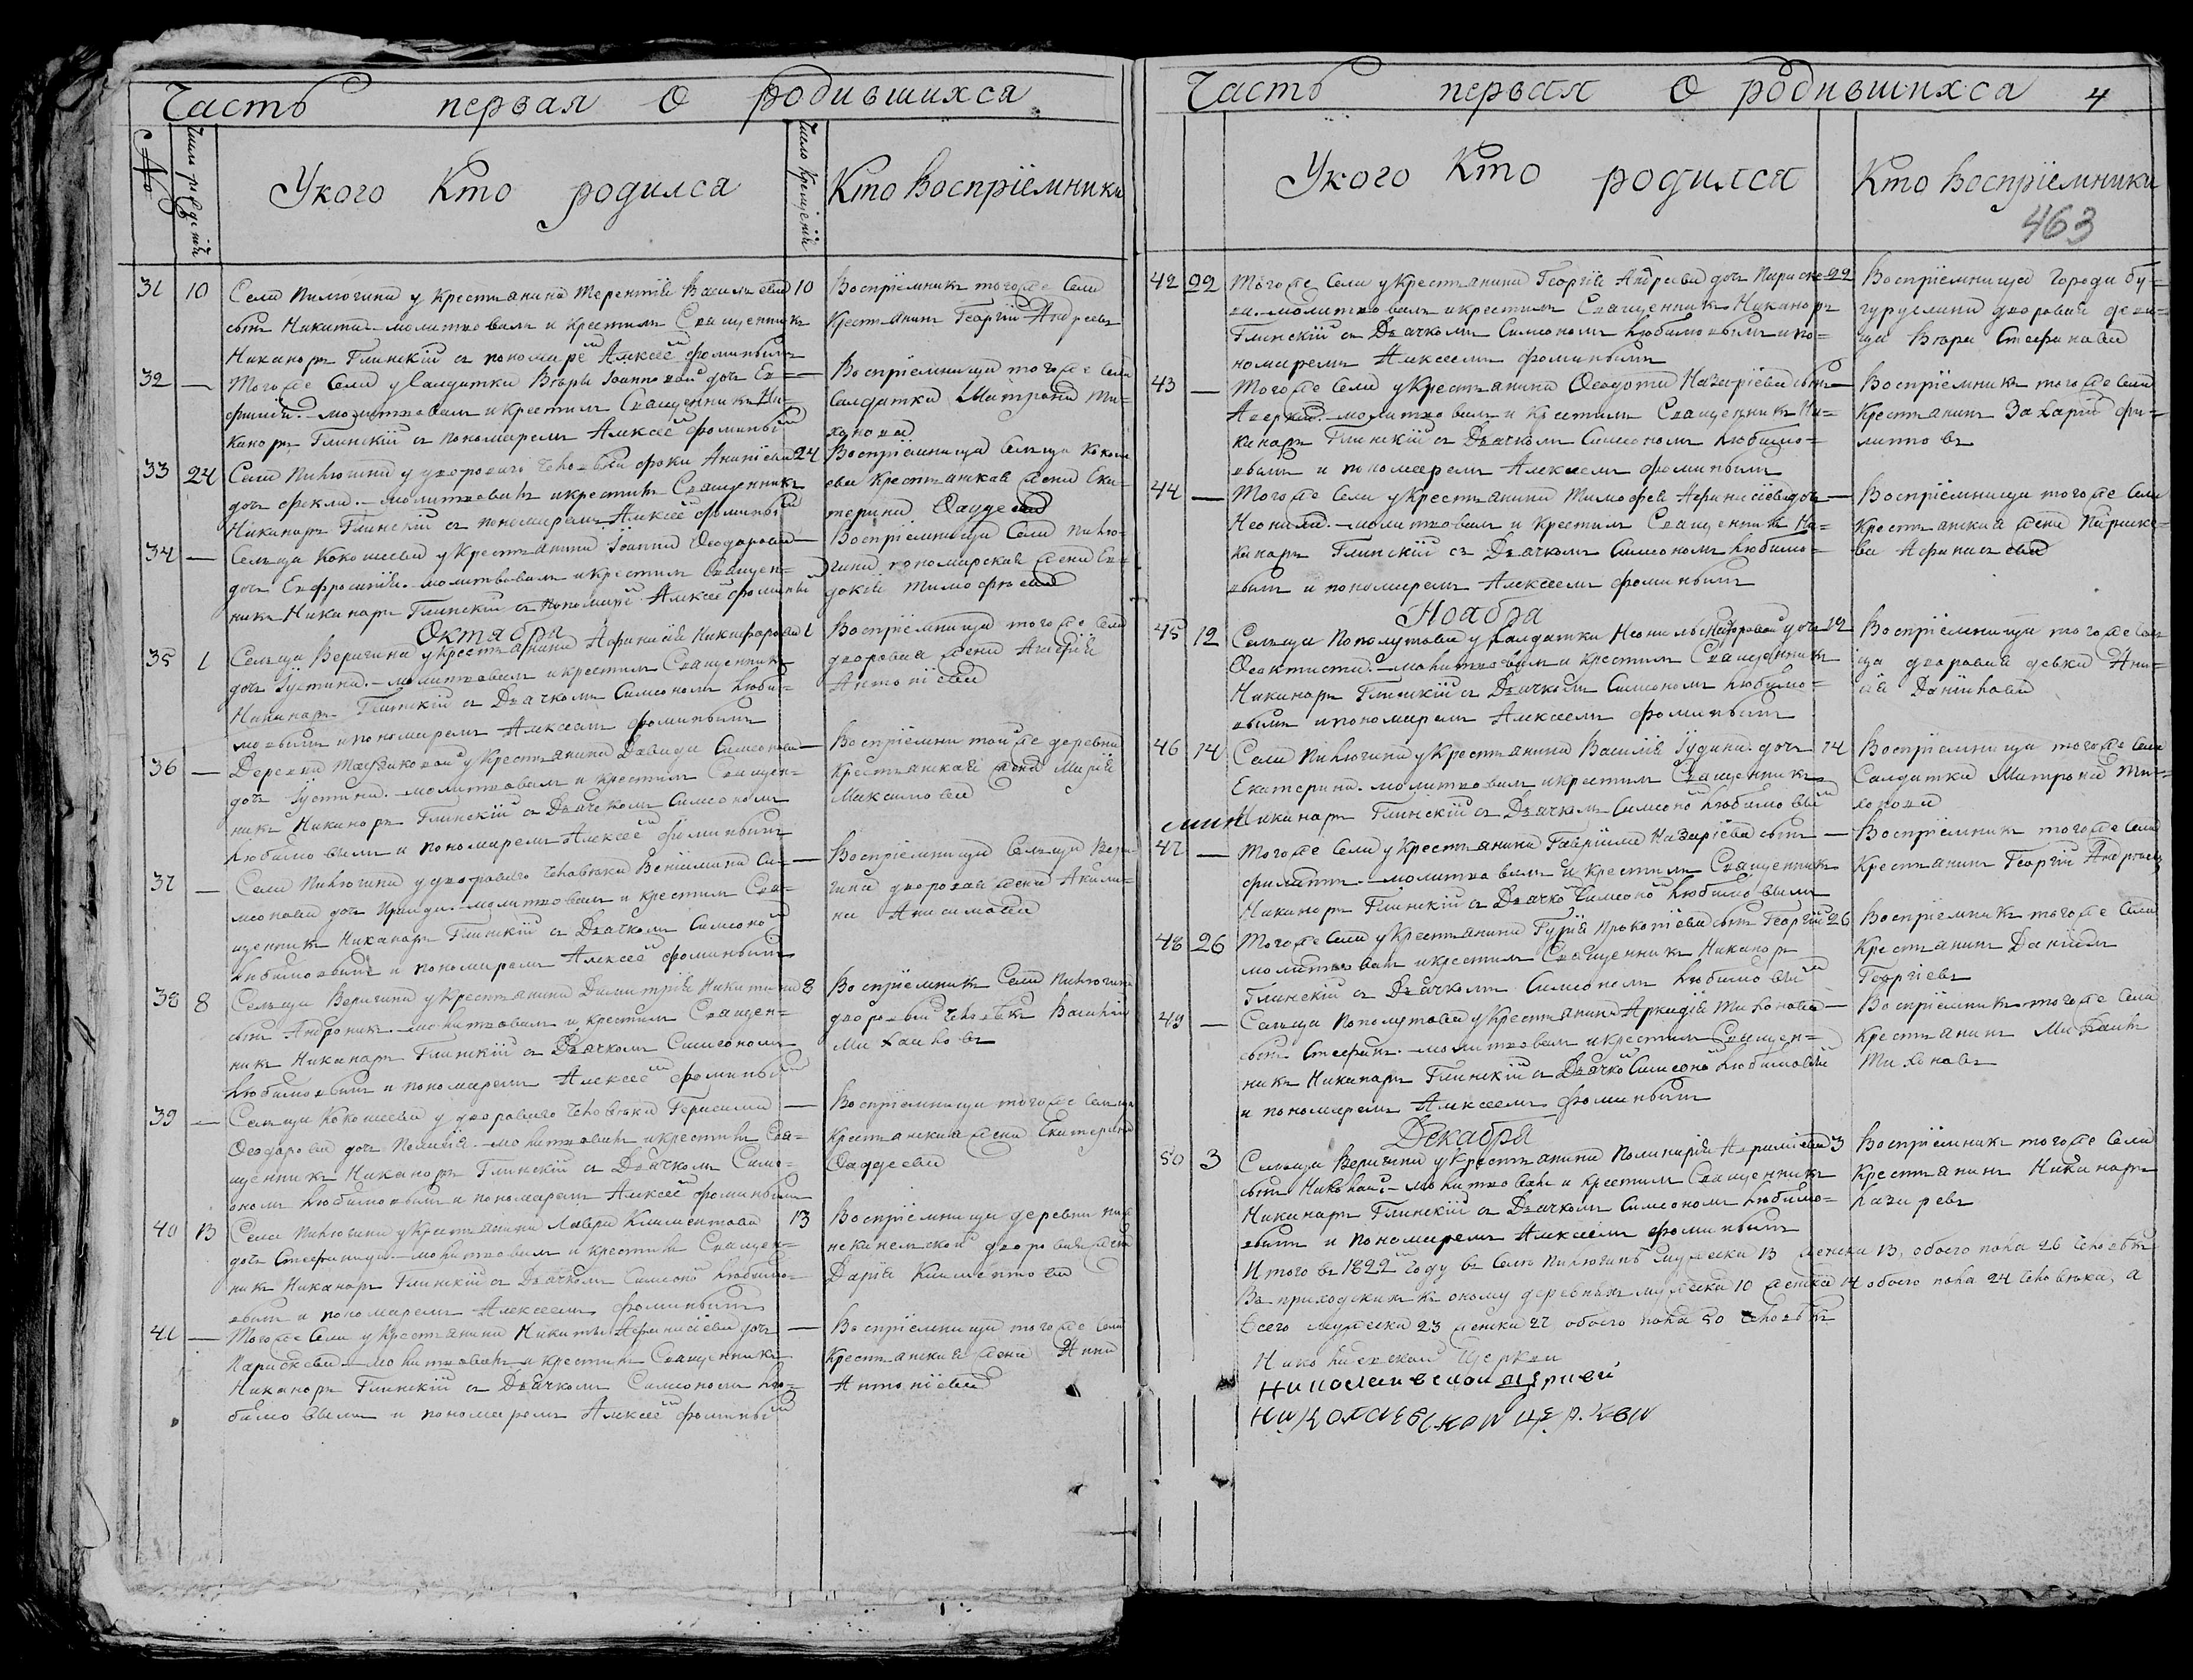 Часть первая О родившихся
№
Число рождения
У кого Кто родился
Число крещения
Кто восприемники
31 10 Села Пилюгина у крестьянина Терентия Васильева 10
сынъ Никита. – молитвовалъ и крестилъ Священникъ
Никаноръ Глинскій съ пономаре Алексее Фоминымъ
Воспріемникъ тогоже Села
Крестьянинъ Георгій Андреевъ
32 — Тогоже Села у Салдатки Вѣры Іоанновой дочь Ев- —
фимія. – молитвовалъ и крестилъ Священникъ Ни-
каноръ Глинскій съ пономаремъ Алексее Фоминый
Воспріемница тогоже Села
Салдатка Матрона Ти-
хонова
33 24 Села Пилюгина у двороваго человѣка Фоки Ананіева 24
дочь Фекла. – молитвовалъ и крестилъ Священникъ
Никаноръ Глинскій съ пономаремъ Алексее Фоминый
Воспріемница Сельца Коко
ева крестьянская жена Ека-
терина
34 — Сельца Кокошеева у Крестьянина Іоанна Ѳеодорова —
дочь Евфросинія. молитвовалъ и крестилъ Священ-
никъ Никаноръ Глинскій съ пономаре Алексее Фоминый
Воспріемница Села Пилю-
гина пономарская жена Ев-
докія Тимофѣева
Октября
35 1 Сельца Веригина у крестьянина Афанасія Никифорова 1
дочь Іустина. – молитвовалъ и крестилъ Священникъ
Никаноръ Глинскій съ Дьячкомъ Симеономъ Люби-
мовымъ и пономаремъ Алексеемъ Фоминымъ
Воспріемница тогоже Села
дворовая жена
Антоніева
36 — Деревни у Крестьянина Давида Симеонова —
дочь Іустина. – молитвовалъ и крестилъ Священ-
никъ Никаноръ Глинскій съ Дьячкомъ Симеономъ
Любимовымъ и пономаремъ Алексее Фоминымъ
Воспріемни тойже деревни
Крестьянская жена Марія
Максимова
37 — Села Пилюгина у двороваго человѣка Веніамина Си- —
меонова дочь Ираида. молитвовалъ и крестилъ Свя-
щенникъ Никаноръ Глинскій съ Дьячкомъ Симеоно
Любимовымъ и пономаремъ Алексее Фоминымъ
Воспріемница Сельца Вери
гина дворовая жена Акили-
на Анисимова
38 8 Сельца Веригина у Крестьянина Димитрія Никитина 8
сынъ Андроникъ. – молитвовалъ и крестилъ Священ-
никъ Никаноръ Глинскій съ Дьячкомъ Симеономъ
Любимовымъ и пономаремъ Алексее Фоминый
Воспріемникъ Села Пилюгина
дворовый человѣкъ Василій
Михайловъ
39 — Сельца Кокошеева у двороваго человѣка Герасима —
Ѳеодорова дочь Пелагія. – молитвовалъ и крестилъ Свя-
щенникъ Никаноръ Глинскій съ Дьячкомъ Симе-
ономъ Любимовымъ и пономаремъ Алексее Фоминымъ
Воспріемница тогоже Сельца
Крестьянская жена Екатерина
Ѳаддеева
40 13 Села Пилюгина у Крестьянина Лавра Климентова 13
дочь Стефанида. – молитвовалъ и крестилъ Священ-
никъ Никаноръ Глинскій съ Дьячкомъ Симеоно Любимо-
вымъ и пономаремъ Алексеемъ Фоминымъ
Воспріемница деревни
дворовая жена
Дарія Климентова
41 — Тогоже Села у крестьянина Никиты Афанасіева дочь —
Параскева – молитвовалъ и крестилъ Священникъ
Никаноръ Глинскій съ Дьячкомъ Симеономъ Лю-
бимовымъ и пономаремъ Алексее Фоминый
Воспріемница тогоже Села
Крестьянская жена Анна
Антоніева
Часть первая О родившихся 4
У кого Кто родился
Кто воспріемники
463
42 22 Тогоже Села у крестьянина Георгія Андреева дочь Параске- 22
ва. – молитвовалъ и крестилъ Священникъ Никаноръ
Глинскій съ Дьячкомъ Симеономъ Любимовымъ и по-
номаремъ Алексеемъ Фоминымъ
Воспріемница города Бу-
гуруслана дворовая деви-
ца Вѣра Стефанова
43 — Тогоже Села у Крестьянина Ѳеодота Назаріева сынъ —
Аверкій. – молитвовалъ и крестилъ Священникъ Ни-
каноръ Глинскій съ Дьячкомъ Симеономъ Любимо-
вымъ и пономаремъ Алексеемъ Фоминымъ
Воспріемникъ тогоже Села
Крестьянинъ Захарій Фи-
липовъ
44 — Тогоже Села у Крестьянина Тимофея Афанасіева дочь —
Неонила. – молитвовалъ и крестилъ Священникъ Ни-
каноръ Глинскій съ Дьячкомъ Симеономъ Любимо-
вымъ и пономаремъ Алексеемъ Фоминымъ
Воспріемница тогоже Села
Крестьянская жена Параске-
ва Афанасьева
Ноября
45 12 Сельца Пополутова у Салдатки Неонилы дочь 12
Ѳеоктиста. – молитвовалъ и крестилъ Священникъ
Никаноръ Глинскій съ Дьячкомъ Симеономъ Любимо-
вымъ и пономаремъ Алексеемъ Фоминымъ
Воспріемница тогоже Сель
ца дворовая девка
Даниилова
46 14 Села Пилюгина у Крестьянина Василія Іудина дочь 14
Екатерина. молитвовалъ и крестилъ Священникъ
Никаноръ Глинскій съ Дьячкомъ Симеоно Любимовый
Воспріемница тогоже Села
Салдатка Матрона Ти-
хонова
47 — Тогоже Села у Крестьянина Гавріила Назаріева сынъ —
Филиппъ. – молитвовалъ и крестилъ Священникъ
Никаноръ Глинскій съ Дьячко Симеоно Любимовымъ
Воспріемникъ тогоже Села
Крестьянинъ Георгій Андреевъ
48 26 Тогоже Села у Крестьянина Гурія Прокопіева сынъ Георгій 26
молитвовалъ и крестилъ Священникъ Никаноръ
Глинскій съ Дьячкомъ Симеономъ Любимовый
Воспріемникъ тогоже Села
Крестьянинъ Даніилъ
Георгіевъ
49 — Сельца Пополутова у Крестьянина Аркадія Тихонова —
сынъ Стефанъ. – молитвовалъ и крестилъ Священ-
никъ Никаноръ Глинскій съ Дьячко Симеоно Любимовый
и пономаремъ Алексеемъ Фоминымъ
Воспріемникъ тогоже Села
Крестьянинъ Михаилъ
Тихоновъ
Декабря
50 3 Сельца Веригина у Крестьянина 3
сынъ Николай. – молитвовалъ и крестилъ Священникъ
Никаноръ Глинскій съ Дьячкомъ Симеономъ Любимо-
вымъ и пономаремъ Алексеемъ Фоминымъ
Воспріемникъ тогоже Села
Крестьянинъ Никаноръ
Лазаревъ
Итого въ 1822 году въ Селѣ Пилюгинѣ мужеска 13 женска 13, обоего пола 26 человѣкъ
Въ приходскихъ къ оному деревняхъ мужеска 10 женска 14 обоего пола 24 человѣка, а
всего мужеска 23 женска 27 обоего пола 50 человѣкъ
Николаевской Церкви
Николаевской церкви
Николаевской церкви